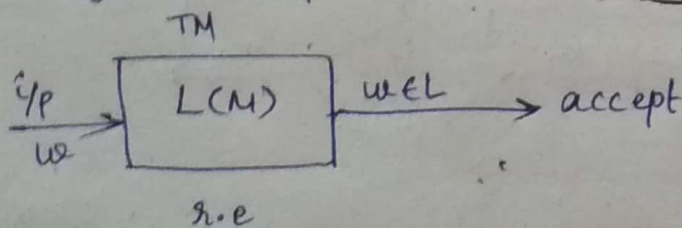 TM
i/p
w
L(M)
w∈L
accept
r.e